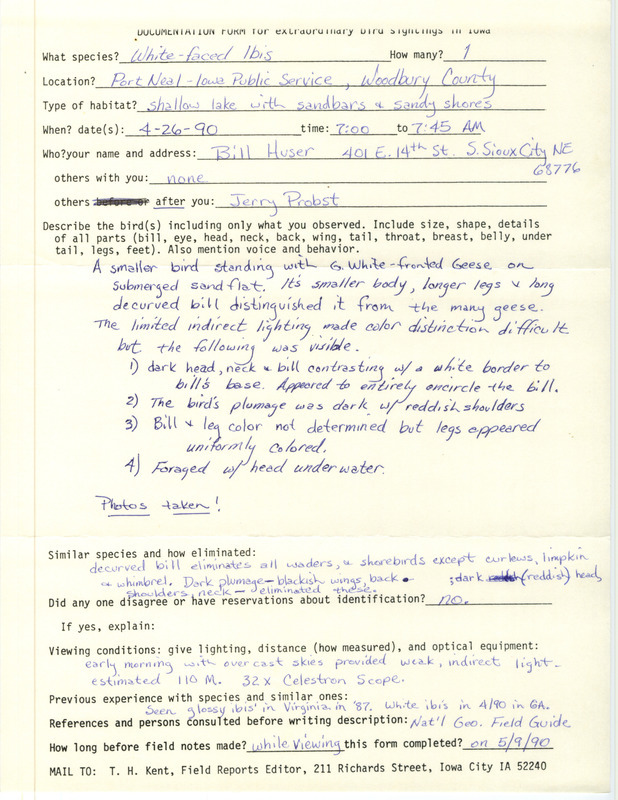 DOCUMENTATION FORM for extraordinary bird sightings in Iowa
What species? White-faced Ibis How many? 1
Location? Port Neal - Iowa Public Service, Woodbury County
Type of habitat? shallow lake with sandbars & sandy shores
When? date(s): 4-26-90 time: 7:00 to 7:45 AM
Who? your name and address: Bill Huser 401 E. 14th St. S. Sioux City NE
68776
others with you: none
others before or after you: Jerry Probst
Describe the bird(s) including only what you observed. Include size, shape, details
of all parts (bill, eye, head, neck, back, wing, tail, throat, breast, belly, under
tail, legs, feet). Also mention voice and behavior.
A smaller bird standing with G. White-fronted Geese on
submerged sandflat. It's smaller body, longer legs & long
decurved bill distinguished it from the many geese.
The limited indirect lighting made color distinction difficult
but the following was visible.
1) dark head, neck & bill contrasting w/ a white border to
bill's base. Appeared to entirely encircle the bill.
2) The bird's plumage was dark w/ reddish shoulders
3) Bill & leg color not determined but legs appeared
uniformly colored.
4) Foraged w/ head underwater.
Photos taken!
Similar species and how eliminated:
decurved bill eliminates all waders, & shorebirds except curlews, limpkin
& whimbrel. Dark plumage - blackish wings, back ; dark (reddish) head,
shoulders, neck - eliminated these.
Did any one disagree or have reservations about identification? no.
If yes, explain:
Viewing conditions: give lighting, distance (how measured), and optical equipment:
early morning with overcast skies provided weak, indirect light.
estimated 110 M. 32x Celestron Scope.
Previous experience with species and similar ones:
Seen glossy ibis' in Virginia in '87. White ibis in 4/90 in GA.
References and persons consulted before writing description: Nat'l Geo. Field Guide
How long before field notes made? while viewing this form completed? on 5/9/90
MAIL TO: T. H. Kent, Field Reports Editor, 211 Richards Street, Iowa City IA 52240